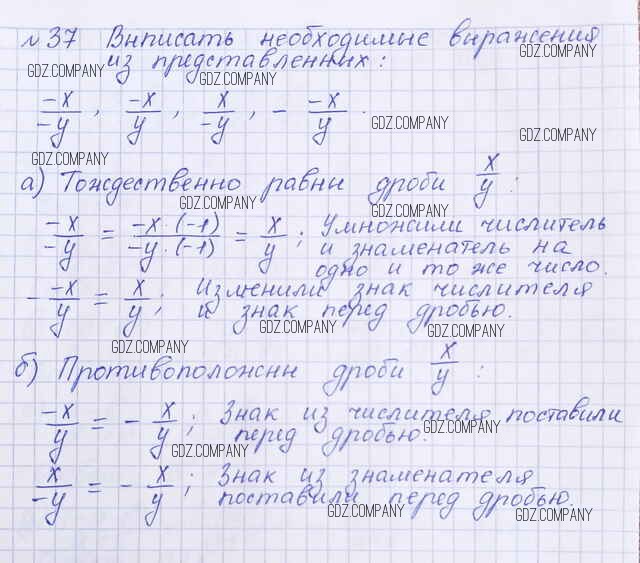 № 37 Выписать необходимые выражения
из представленных:
GDZ.COMPANY GDZ.COMPANY GDZ.COMPANY
-x/-y, -x/y, x/-y, - -x/y.
GDZ.COMPANY GDZ.COMPANY
GDZ.COMPANY
а) Тождественно равны дроби x/y:
GDZ.COMPANY GDZ.COMPANY
-x/-y = -x·(-1)/-y·(-1) = x/y; Умножили числитель
и знаменатель на
одно и то же число.
GDZ.COMPANY GDZ.COMPANY
- -x/y = x/y; Изменили знак числителя
и знак перед дробью.
GDZ.COMPANY GDZ.COMPANY
GDZ.COMPANY
б) Противоположны дроби x/y:
-x/y = - x/y; Знак из числителя поставили
перед дробью.
GDZ.COMPANY
GDZ.COMPANY
x/-y = - x/y; Знак из знаменателя
поставили перед дробью.
GDZ.COMPANY GDZ.COMPANY